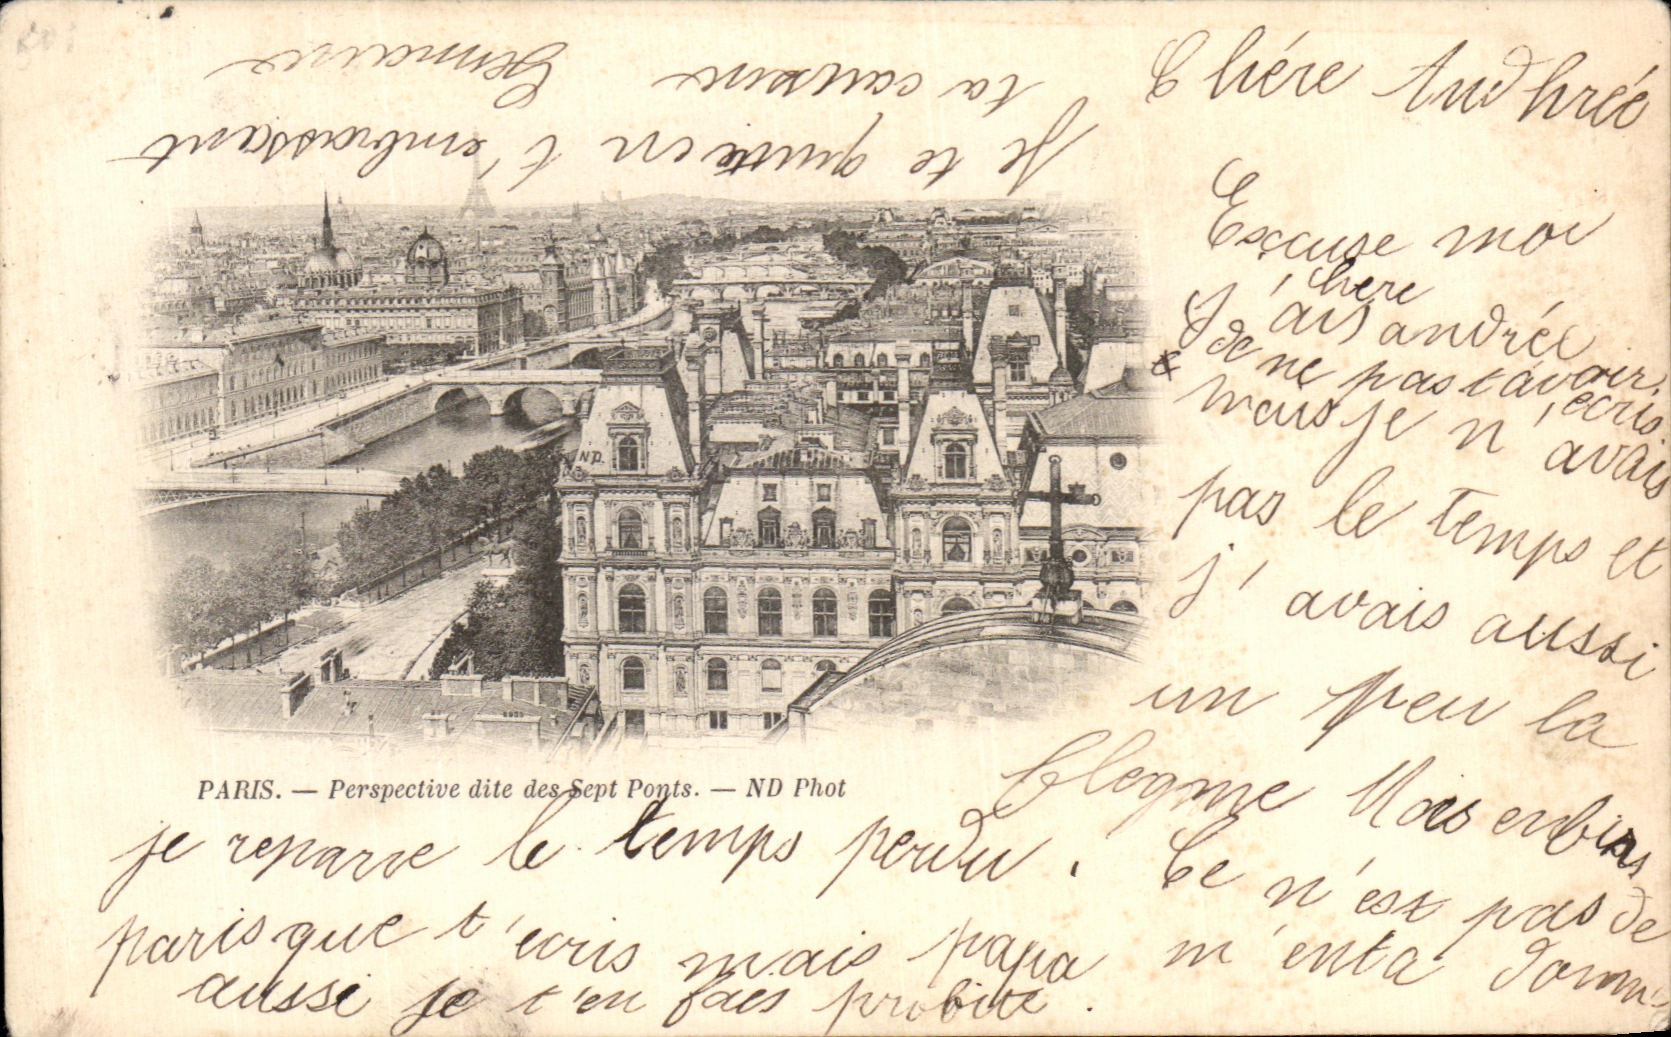 Chére Andhrée
Esccuse moi
chere
J'ais andrée
De ne pas t'avoir
écris
mais je n'avais
pas le temps et
j'avais aussi
un peu la
flegme Mais enbien
je reparre le temps perdu.
Ce n'est pas de
paris que t'ecris mais papa m'enta
aussi je t'en fais probite.
Je te quitte en t'embrassant
ta cousine Germaine
PARIS. — Perspective dite des Sept Ponts. — ND Phot
ND.